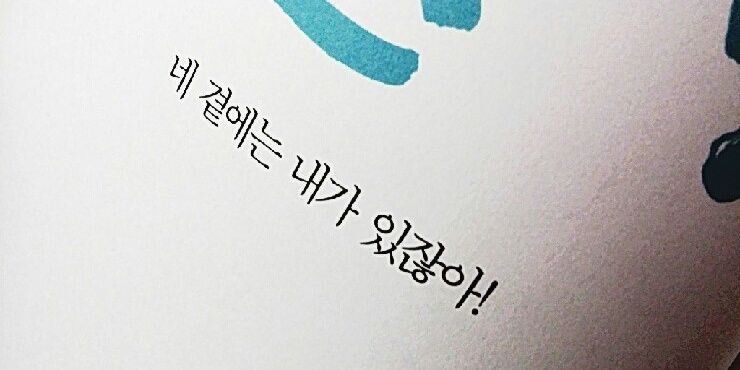 네 곁에는 내가 있잖아!